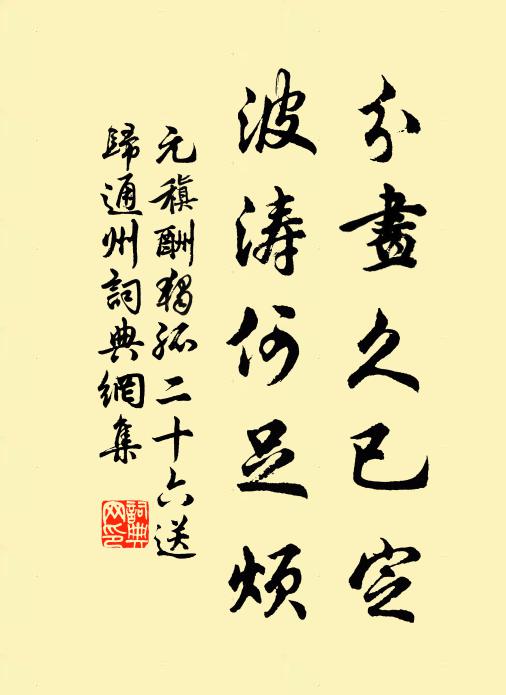 分畫久已定
波濤何足煩
元稹酬獨孤二十六送
歸通州詞典網集
詞典网印